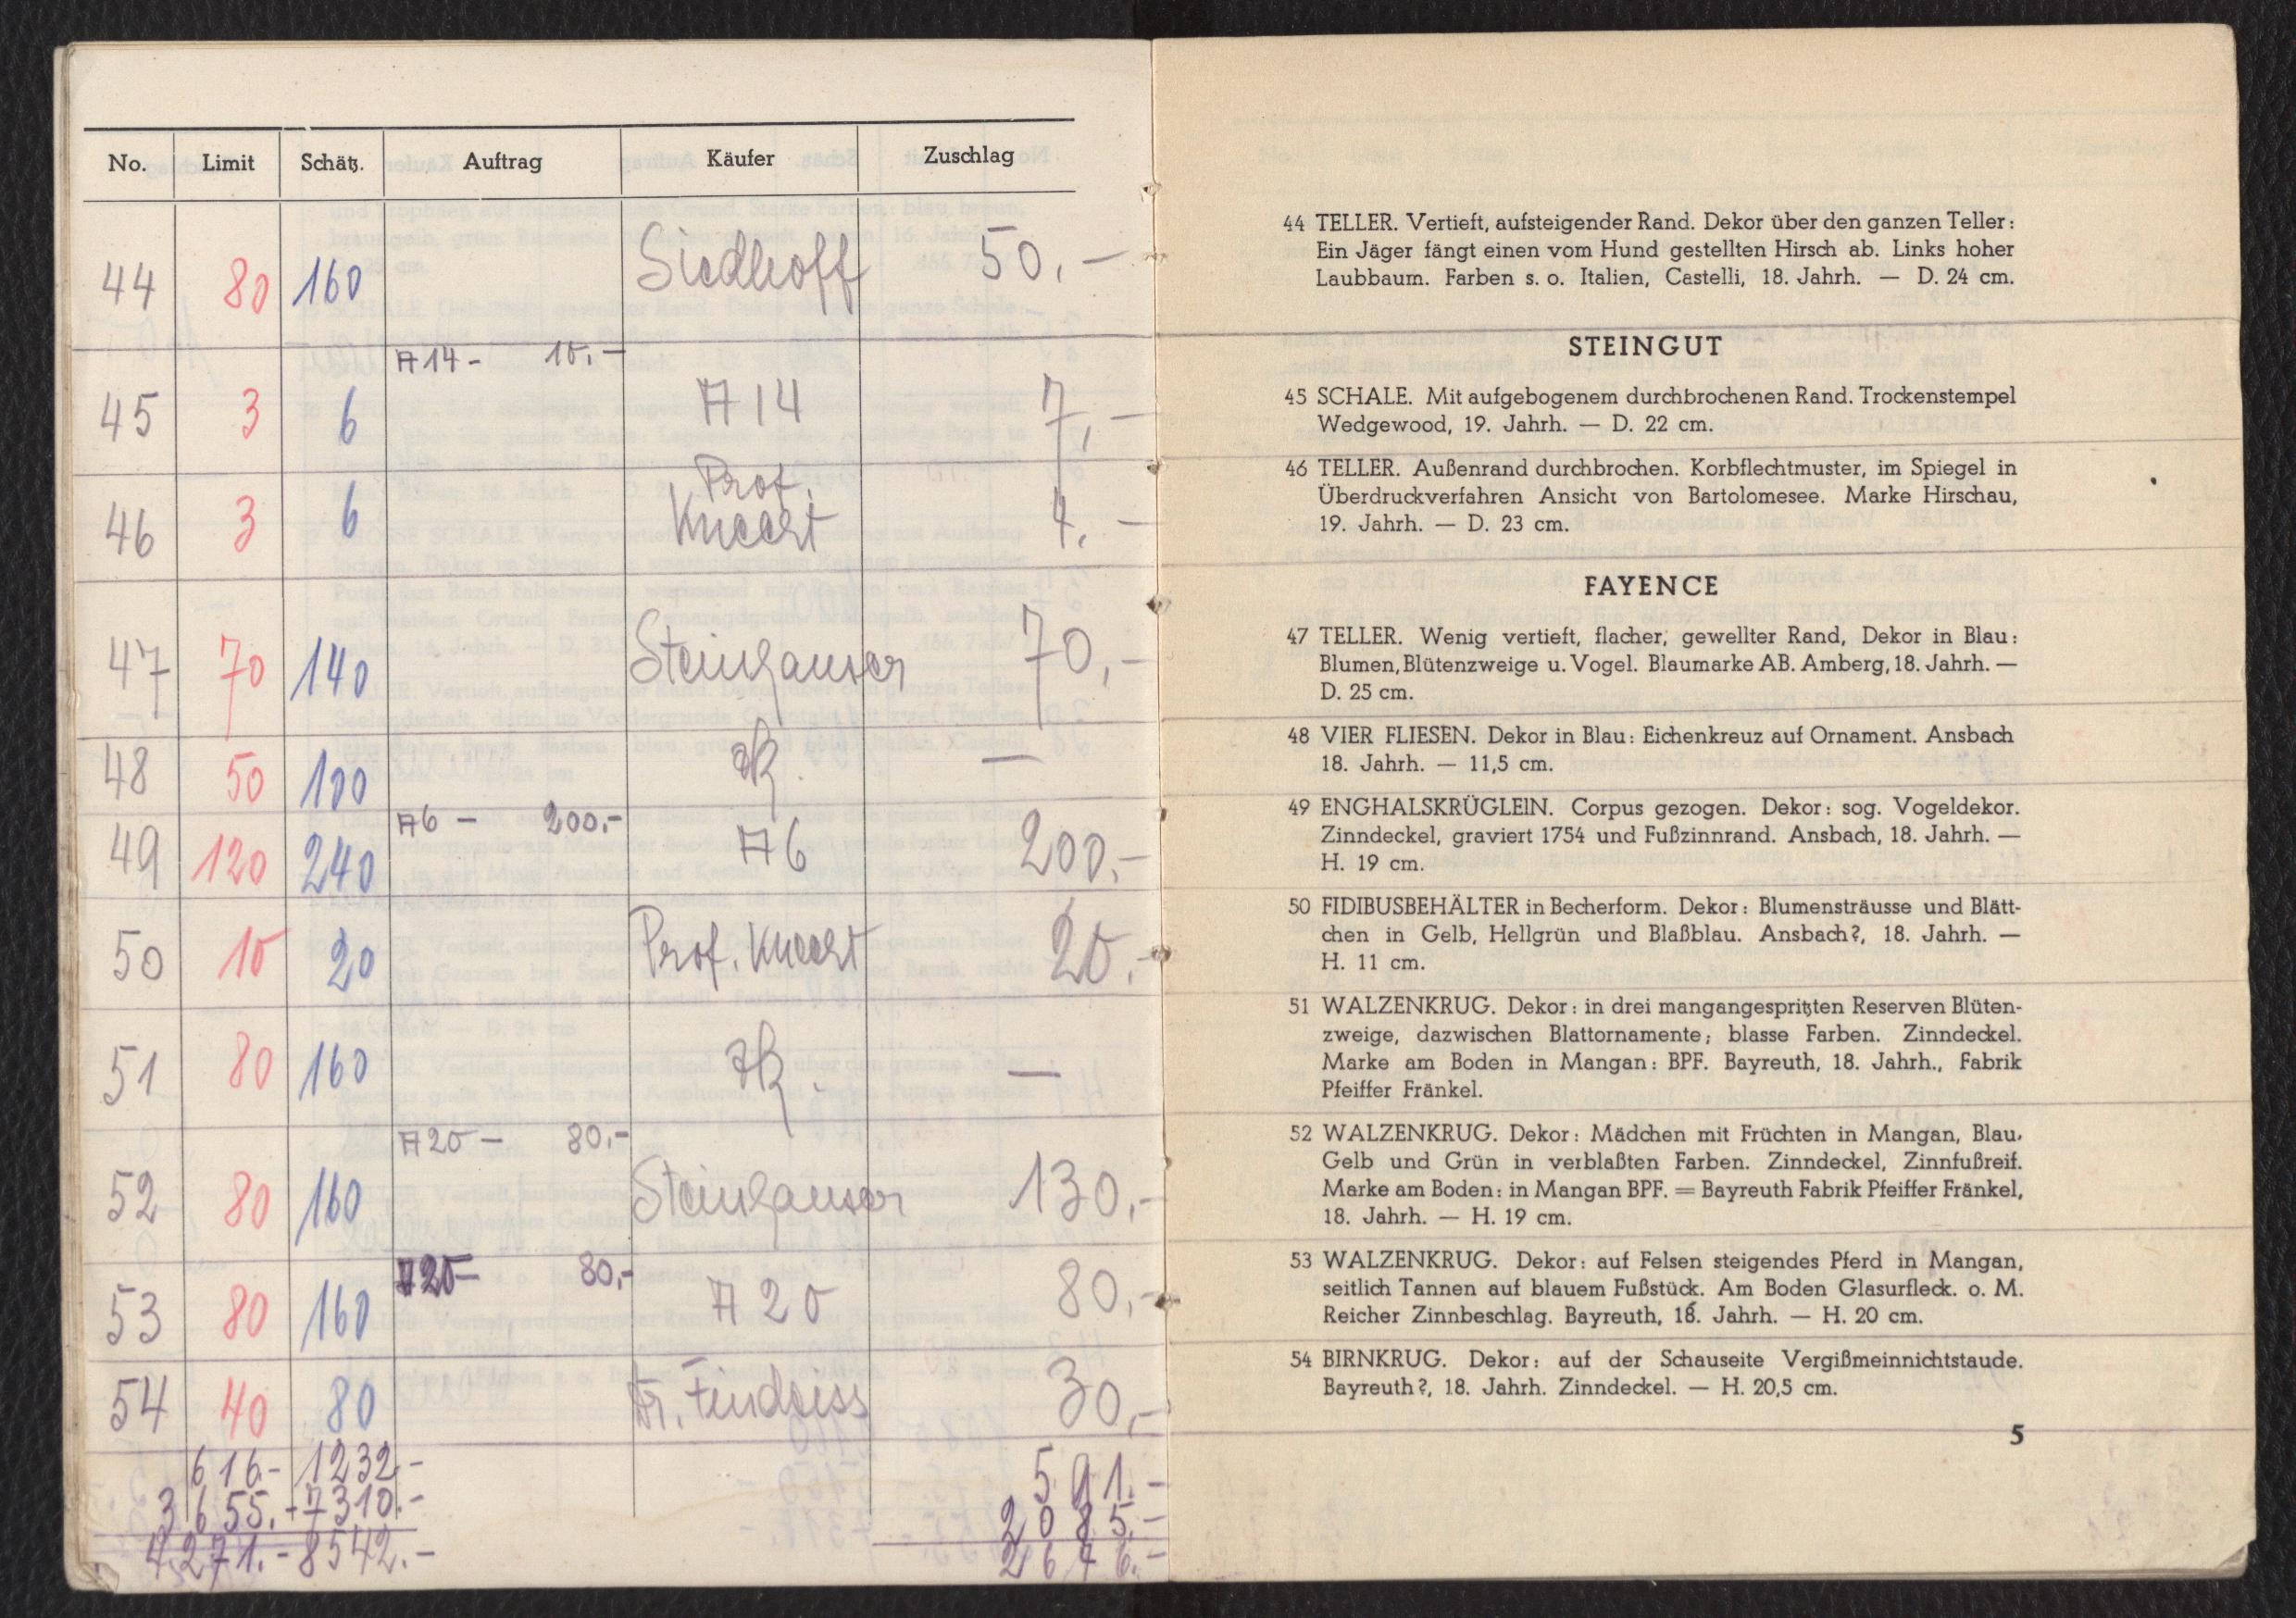 No. Limit Schätz. Auftrag Käufer Zuschlag
44 80 160 Siedhoff 50.-
A14- 10.-
45 3 6 A14 7,-
Prof.
46 3 6 Knecht 4.-
47 70 140 Steinhauser 70,-
48 50 100 —
A6 - 200.-
49 120 240 A6 200.-
50 10 20 Prof. Knecht 20.-
51 80 160 —
A20- 80.-
52 80 160 Steinhauser 130,-
A20- 80,-
53 80 160 A20 80,-
54 40 80 30,-
616.- 1232.- 591.-
3655.- 7310.- 2085.-
4271.- 8542.- 2676.-
44 TELLER. Vertieft, aufsteigender Rand. Dekor über den ganzen Teller:
Ein Jäger fängt einen vom Hund gestellten Hirsch ab. Links hoher
Laubbaum. Farben s. o. Italien, Castelli, 18. Jahrh. — D. 24 cm.
STEINGUT
45 SCHALE. Mit aufgebogenem durchbrochenen Rand. Trockenstempel
Wedgewood, 19. Jahrh. — D. 22 cm.
46 TELLER. Außenrand durchbrochen. Korbflechtmuster, im Spiegel in
Überdruckverfahren Ansicht von Bartolomesee. Marke Hirschau,
19. Jahrh. — D. 23 cm.
FAYENCE
47 TELLER. Wenig vertieft, flacher, gewellter Rand, Dekor in Blau:
Blumen, Blütenzweige u. Vogel. Blaumarke AB. Amberg, 18. Jahrh. —
D. 25 cm.
48 VIER FLIESEN. Dekor in Blau: Eichenkreuz auf Ornament. Ansbach
18. Jahrh. — 11,5 cm.
49 ENGHALSKRÜGLEIN. Corpus gezogen. Dekor: sog. Vogeldekor.
Zinndeckel, graviert 1754 und Fußzinnrand. Ansbach, 18. Jahrh. —
H. 19 cm.
50 FIDIBUSBEHÄLTER in Becherform. Dekor: Blumensträusse und Blätt-
chen in Gelb, Hellgrün und Blaßblau. Ansbach?, 18. Jahrh. —
H. 11 cm.
51 WALZENKRUG. Dekor: in drei mangangespritzten Reserven Blüten-
zweige, dazwischen Blattornamente; blasse Farben. Zinndeckel.
Marke am Boden in Mangan: BPF. Bayreuth, 18. Jahrh., Fabrik
Pfeiffer Fränkel.
52 WALZENKRUG. Dekor: Mädchen mit Früchten in Mangan, Blau,
Gelb und Grün in verblaßten Farben. Zinndeckel, Zinnfußreif.
Marke am Boden: in Mangan BPF. = Bayreuth Fabrik Pfeiffer Fränkel,
18. Jahrh. — H. 19 cm.
53 WALZENKRUG. Dekor: auf Felsen steigendes Pferd in Mangan,
seitlich Tannen auf blauem Fußstück. Am Boden Glasurfleck. o. M.
Reicher Zinnbeschlag. Bayreuth, 18. Jahrh. — H. 20 cm.
54 BIRNKRUG. Dekor: auf der Schauseite Vergißmeinnichtstaude.
Bayreuth?, 18. Jahrh. Zinndeckel. — H. 20,5 cm.
5